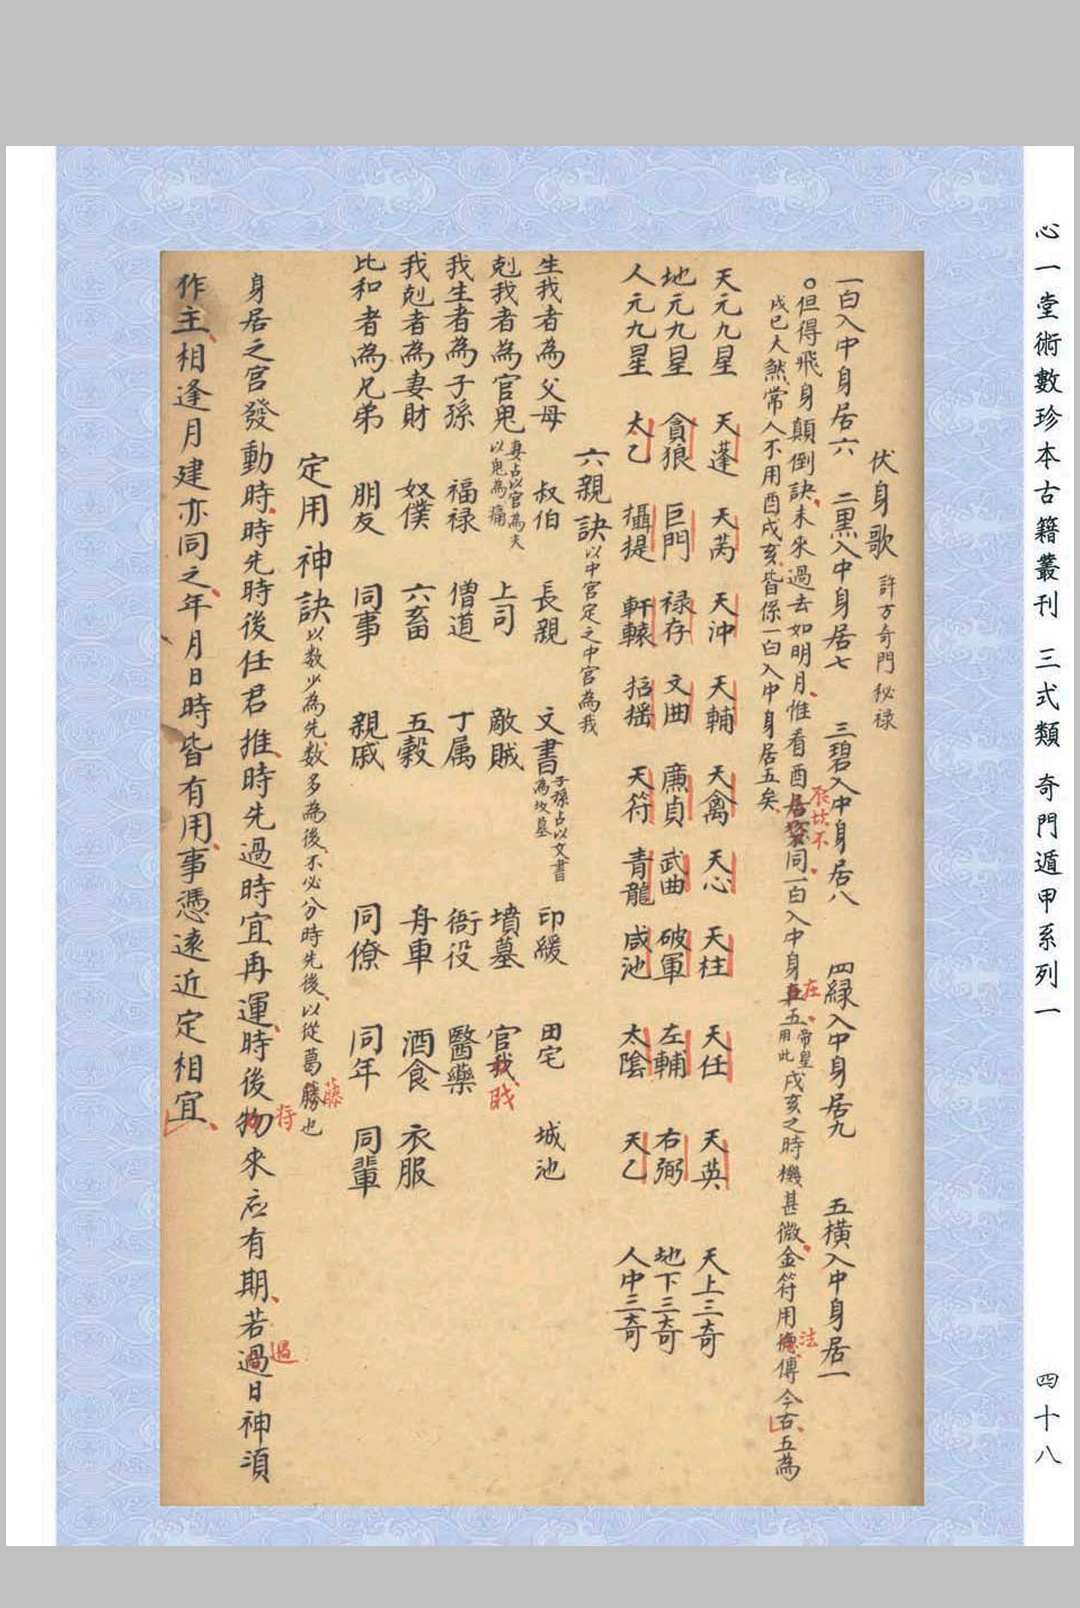 心一堂術數珍本古籍叢刊 三式類 奇門遁甲系列一
四十八
伏身歌 許方奇門秘禄
一白入中身居六 二黑入中身居七 三碧入中身居八 四緑入中身居九 五横入中身居一
○但得飛身顛倒訣未來過去如明月惟看酉同一白入中身五帝皇用此戌亥之時機甚微金符用傳今古五為
戊巳人煞常人不用酉戌亥皆係一白入中身居五矣
張坎不
在
法
天元九星 天蓬 天芮 天沖 天輔 天禽 天心 天柱 天任 天英 天上三奇
地元九星 貪狼 巨門 禄存 文曲 廉貞 武曲 破軍 左輔 右弼 地下三奇
人元九星 太乙 攝提 軒轅 招摇 天符 青龍 咸池 太陰 天乙 人中三奇
六親訣 以中宮定之中宮為我
生我者為父母 叔伯 長親 文書 子孫占以文書為坟墓 印緩 田宅 城池
剋我者為官鬼 妻占以官為夫以鬼為痛 上司 敵賊 墳墓 官我
賊
我生者為子孫 福禄 僧道 丁属 衙役 醫藥
我剋者為妻財 奴僕 六畜 五穀 舟車 酒食 衣服
比和者為兄弟 朋友 同事 親戚 同僚 同年 同輩
定用神訣 以数少為先数多為後不必分時先後以從葛勝也
藤
身居之宮發動時時先時後任君推時先過時宜再運時後物來应有期若過日神須
将
過
作主相逢月建亦同之年月日時皆有用事憑遠近定相宜